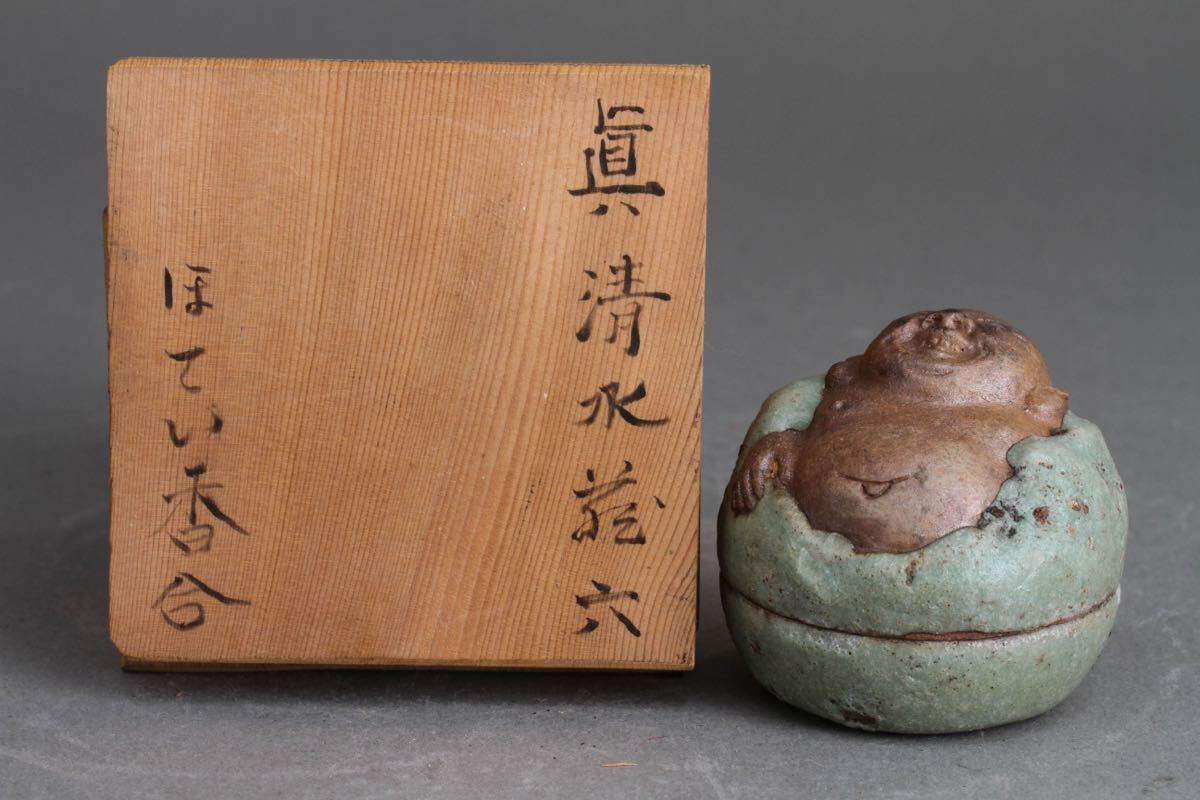 眞清水蔵六
ほてい香合